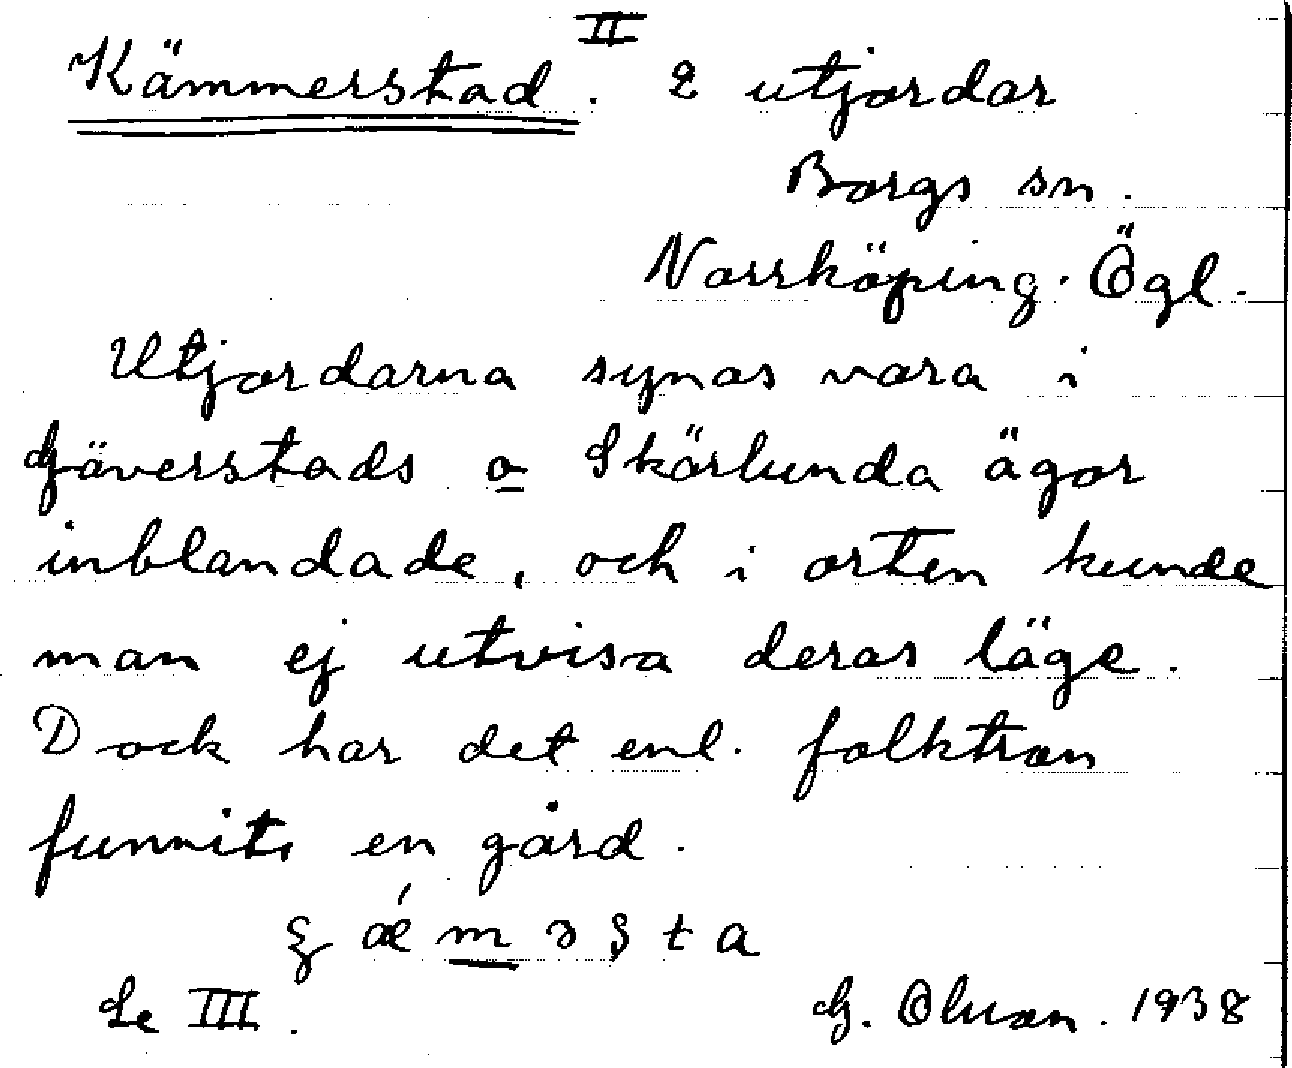 Kämmerstad II. 2 utjordar
Borgs sn.
Norrköping. Ögl.
Utjordarna synas vara i
Gäverstads o Skärlunda ägor
inblandade, och i orten kunde
man ej utvisa deras läge.
Dock har det enl. folktron
funnits en gård.
Se III.
G. Olsson. 1938